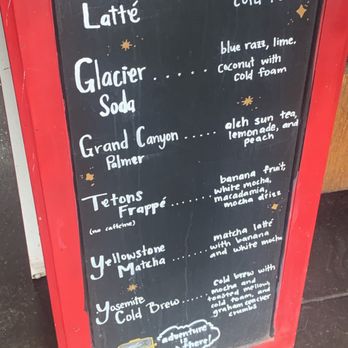 Latté
Glacier ..... blue razz, lime,
Soda coconut with
cold foam
Grand Canyon ..... oleh sun tea,
Palmer lemonade, and
peach
Tetons ..... banana fruit,
Frappé white mocha,
(no caffeine) macadamia,
mocha drizz
Yellowstone ..... matcha latté
Matcha with banana
and white mocha
Yosemite ..... cold brew with
Cold Brew mocha and
toasted mellow
cold foam, and
graham cracker
crumbs
adventure
is
there!